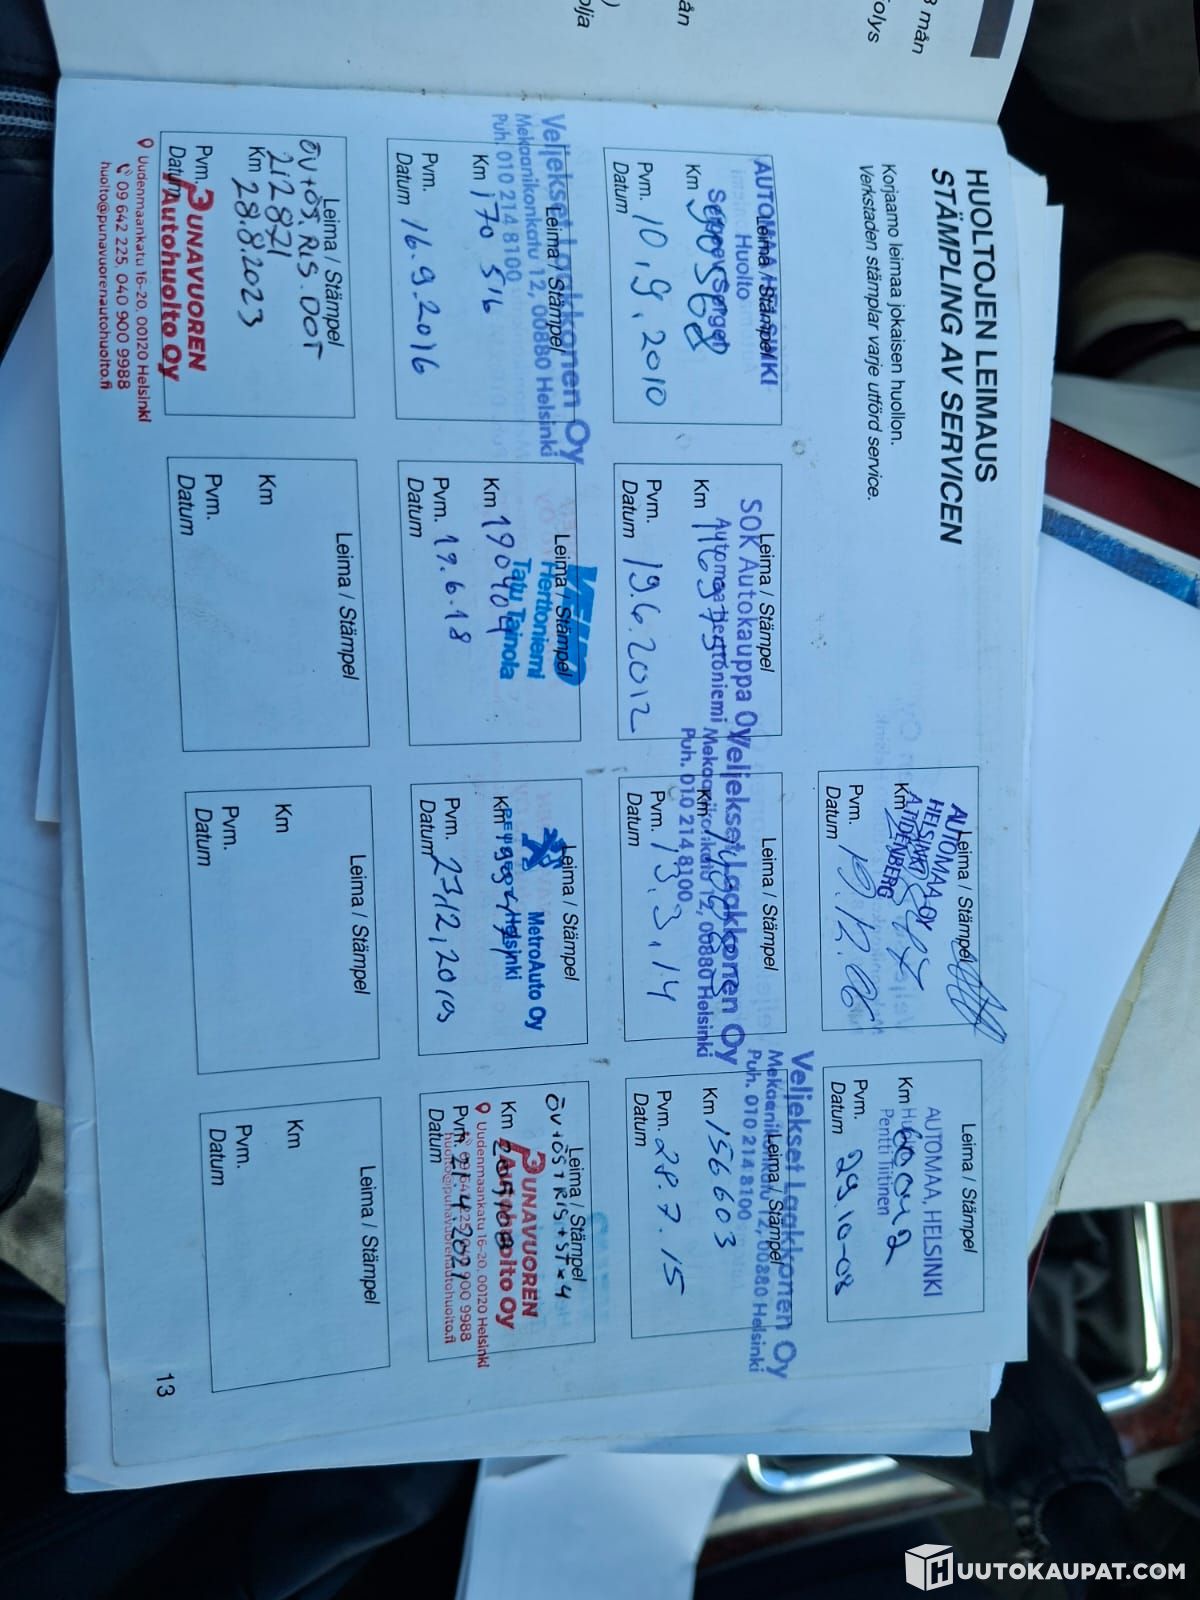 HUOLTOJEN LEIMAUS
STÄMPLING AV SERVICEN
Korjaamo leimaa jokaisen huollon.
Verkstaden stämplar varje utförd service.
Leima / Stämpel
AUTOMAA OY
HELSINKI
Km
Pvm. 19.12.06
Datum
Leima / Stämpel
AUTOMAA, HELSINKI
Pentti Iitinen
Km 60042
Pvm. 29.10-08
Datum
Leima / Stämpel
Huolto
Km 90568
Pvm. 10.9.2010
Datum
Leima / Stämpel
SOK Autokauppa Oy
Automaa Herttoniemi
Km 116975
Pvm. 19.6.2012
Datum
Leima / Stämpel
Veljekset Laakkonen Oy
Mekaanikonkatu 12, 00880 Helsinki
Puh. 010 214 8100
Km
Pvm. 13.3.14
Datum
Leima / Stämpel
Veljekset Laakkonen Oy
Mekaanikonkatu 12, 00880 Helsinki
Puh. 010 214 8100
Km 156603
Pvm. 28.7.15
Datum
Leima / Stämpel
Veljekset Laakkonen Oy
Mekaanikonkatu 12, 00880 Helsinki
Puh. 010 214 8100
Km 170 516
Pvm. 16.9.2016
Datum
Leima / Stämpel
Herttoniemi
Tatu Tainola
Km 190404
Pvm. 19.6.18
Datum
Leima / Stämpel
MetroAuto Oy
Helsinki
Km
Pvm. 23.12.2019
Datum
Leima / Stämpel
ÖV+ÖS+RIS+ST×4
PUNAVUOREN
Autohuolto Oy
Uudenmaankatu 16-20, 00120 Helsinki
huolto@punavuorenautohuolto.fi
Km
Pvm. 21.4.2021
Datum
Leima / Stämpel
ÖV+ÖS.RIS.DOT
212871
Km 28.8.2023
Pvm.
Datum
PUNAVUOREN
Autohuolto Oy
Uudenmaankatu 16-20, 00120 Helsinki
09 642 225, 040 900 9988
huolto@punavuorenautohuolto.fi
Leima / Stämpel
Km
Pvm.
Datum
Leima / Stämpel
Km
Pvm.
Datum
Leima / Stämpel
Km
Pvm.
Datum
13
HUUTOKAUPAT.COM